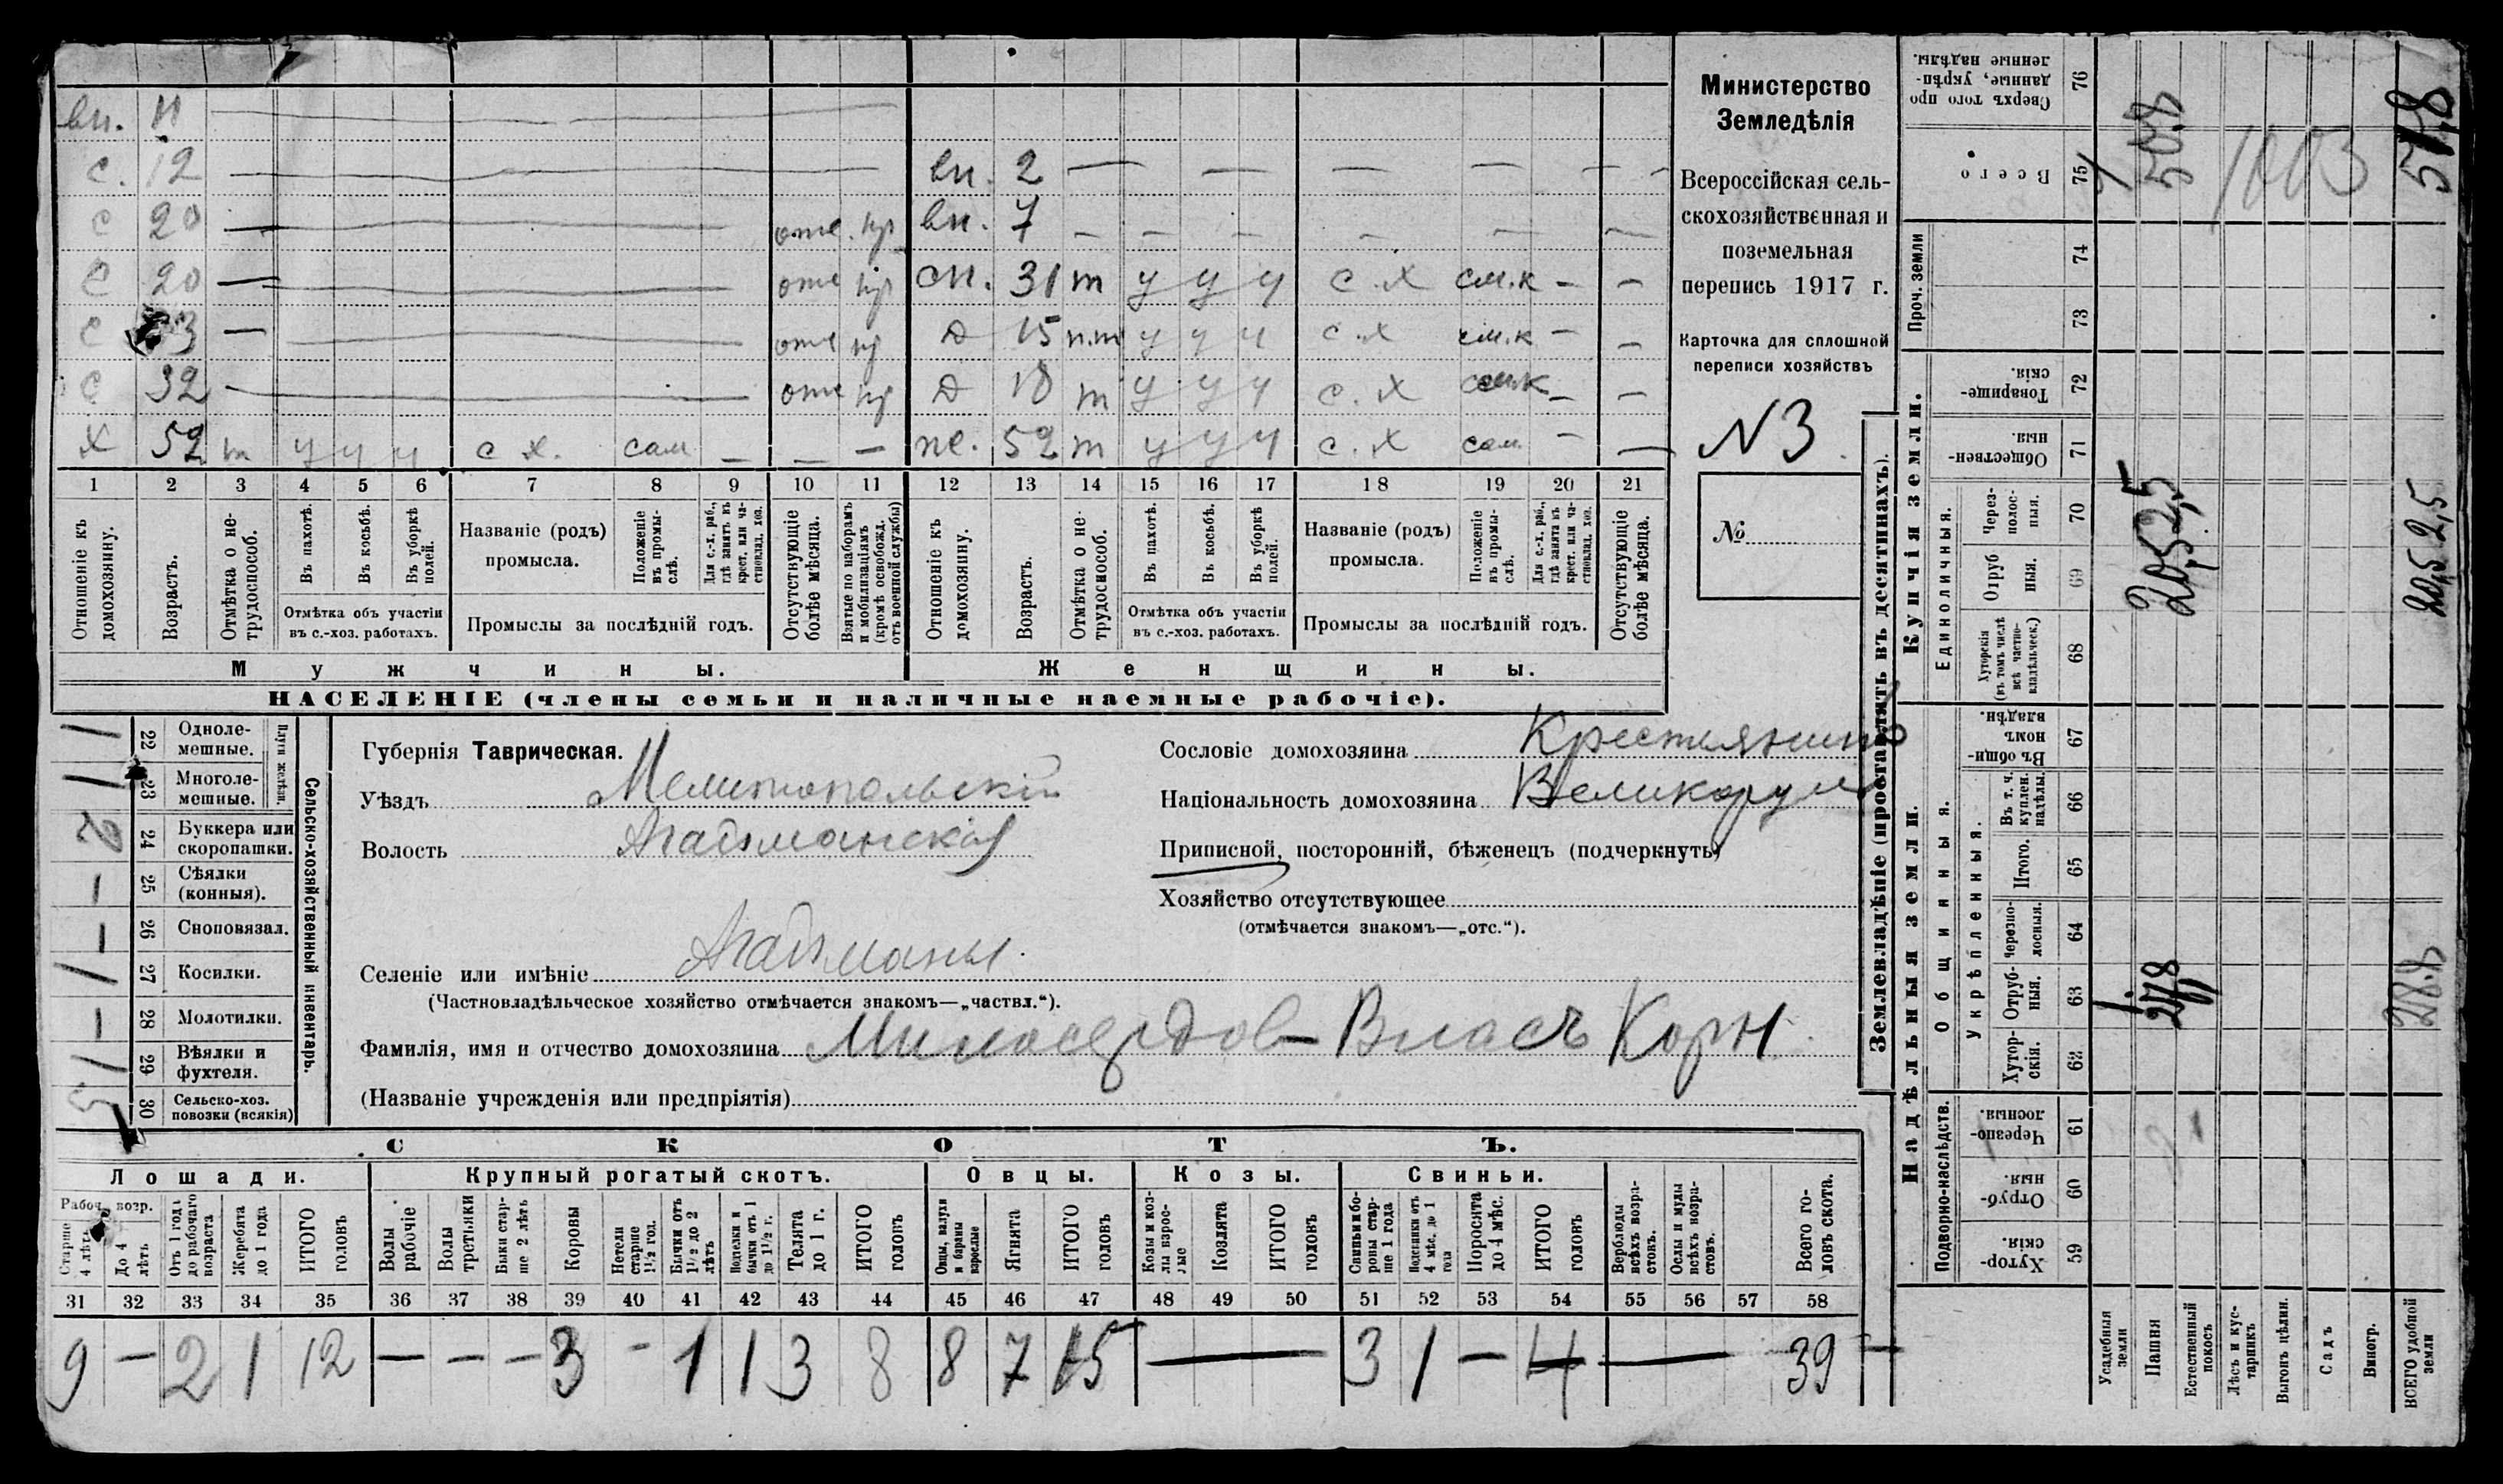 вн. 11
с. 12 вн. 2
с 20 отс. нр вн. 7
с 20 отс нр сн. 31 т у у у с.х сем.к
с отс нр д 15 п.т у у у с.х сем.к
с 32 отс нр д 18 т у у у с.х сем.к
х 52 т у у у с х. сам же. 52 т у у у с.х сам
1 2 3 4 5 6 7 8 9 10 11 12 13 14 15 16 17 18 19 20 21
Отношеніе къ домохозяину.
Возрастъ.
Отмѣтка о не-трудоспособ.
Въ пахотѣ.
Въ косьбѣ.
Въ уборкѣ полей.
Отмѣтка объ участіи въ с.-хоз. работахъ.
Названіе (родъ) промысла.
Положеніе въ промы-слѣ.
Для с.-х. раб., гдѣ занятъ въ крест. или ча-стновлад. хоз.
Промыслы за послѣдній годъ.
Отсутствующіе болѣе мѣсяца.
Взятые по наборамъ и мобилизаціямъ (кромѣ освобожд. отъ военной службы)
Отношеніе къ домохозяину.
Возрастъ.
Отмѣтка о не-трудоспособ.
Въ пахотѣ.
Въ косьбѣ.
Въ уборкѣ полей.
Отмѣтка объ участіи въ с.-хоз. работахъ.
Названіе (родъ) промысла.
Положеніе въ промы-слѣ.
Для с.-х. раб., гдѣ занята въ крест. или ча-стновлад. хоз.
Промыслы за послѣдній годъ.
Отсутствующіе болѣе мѣсяца.
Мужчины. Женщины.
НАСЕЛЕНІЕ (члены семьи и наличные наемные рабочіе).
Министерство
Земледѣлія
Всероссійская сель-
скохозяйственная и
поземельная
перепись 1917 г.
Карточка для сплошной
переписи хозяйствъ
N 3
№
Сельско-хозяйственный инвентарь.
Плуги желѣзн.
22 Одноле-мешные. 1
23 Многоле-мешные. 1
24 Буккера или скоропашки. 2
25 Сѣялки (конныя). –
26 Сноповязал. –
27 Косилки. 1
28 Молотилки. –
29 Вѣялки и фухтеля. 1
30 Сельско-хоз. повозки (всякія)
Губернія Таврическая.
Уѣздъ Мелитопольскій
Волость Агайманская
Селеніе или имѣніе Агайманы.
(Частновладѣльческое хозяйство отмѣчается знакомъ—„частвл.“).
Фамилія, имя и отчество домохозяина Милосердов Власъ Корн.
(Названіе учрежденія или предпріятія)
Сословіе домохозяина Крестьянинъ
Національность домохозяина Великорус
Приписной, посторонній, бѣженецъ (подчеркнуть)
Хозяйство отсутствующее
(отмѣчается знакомъ—„отс.“).
СКОТЪ.
Лошади. Крупный рогатый скотъ. Овцы. Козы. Свиньи.
Рабоч. возр.
Старше 4 лѣтъ
До 4 лѣтъ
Отъ 1 года до рабочаго возраста
Жеребята до 1 года
ИТОГО головъ
Волы рабочіе
Волы третьяки
Быки стар-ше 2 лѣтъ
Коровы
Нетели старше 1½ год.
Бычки отъ 1½ до 2 лѣтъ
Подтелки и бычки отъ 1 до 1½ г.
Телята до 1 г.
ИТОГО головъ
Овцы, валухи и бараны взрослые
Ягнята
ИТОГО головъ
Козы и коз-лы взрос-лые
Козлята
ИТОГО головъ
Свиньи и бо-ровы стар-ше 1 года
Подсвинки отъ 4 мѣс. до 1 года
Поросята до 4 мѣс.
ИТОГО головъ
Верблюды всѣхъ возра-стовъ.
Ослы и мулы всѣхъ возра-стовъ.
Всего го-ловъ скота.
31 32 33 34 35 36 37 38 39 40 41 42 43 44 45 46 47 48 49 50 51 52 53 54 55 56 57 58
9 – 2 1 12 – – – 3 – 1 1 3 8 8 7 15 — 3 1 – 4 — 39
Землевладѣніе (проставлять въ десятинахъ).
Купчія земли.
Надѣльныя земли.
Сверхъ того про данные, укрѣп-ленные надѣлы. 76
Всего 75 508 1003 51,8
Проч. земли 74 73
Товарище-скія. 72
Обществен-ныя. 71
Единоличныя.
Через-полос-ныя. 70 20,5 2,5 20,5 2,5
Отруб ныя. 69
Хуторскія (въ томъ числѣ всѣ частно-владѣльческ.) 68
Общинныя.
Въ общи-номъ владѣн. 67
Укрѣпленныя.
Въ т. ч. куплен. надѣлы. 66
Итого. 65
Черезпо-лосныя. 64
Отруб-ныя. 63 1 27,8 28.8
Хутор-скія. 62
Подворно-наслѣдств.
Черезпо-лосныя. 61
Отруб-ныя. 60
Хутор-скія. 59
Усадебныя земли
Пашня
Естественный покосъ
Лѣсъ и кус-тарникъ
Выгонъ цѣлин.
Садъ
Виногр.
ВСЕГО удобной земли